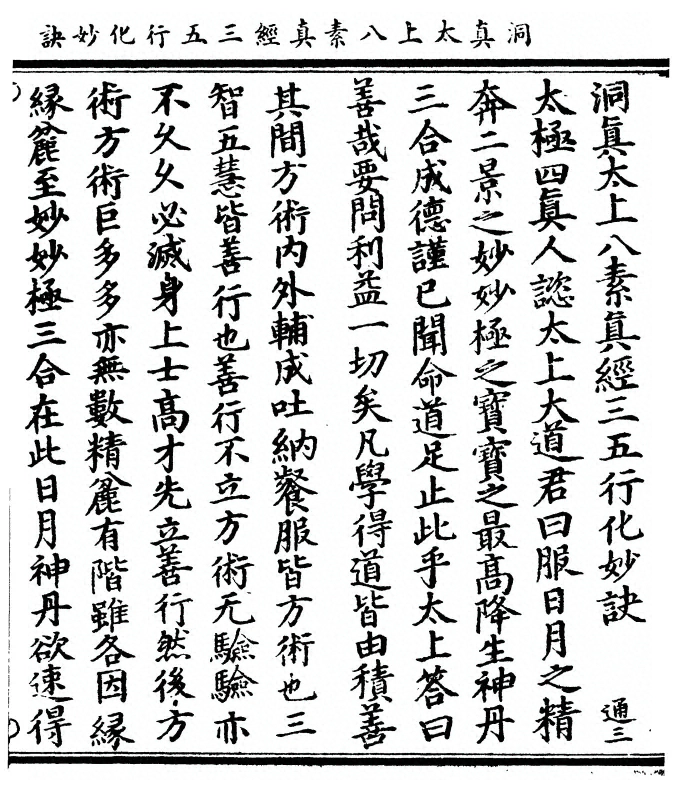 洞真太上八素真經三五行化妙訣
洞眞太上八素眞經三五行化妙訣 通三
太極四眞人諮太上大道君曰服日月之精
奔二景之妙妙極之寶寶之最高降生神丹
三合成德謹已聞命道足止此乎太上答曰
善哉要問利益一切矣凡學得道皆由積善
其間方術內外輔成吐納餐服皆方術也三
智五慧皆善行也善行不立方術无驗驗亦
不久久必滅身上士高才先立善行然後方
術方術巨多多亦無數精麄有階雖各因緣
緣麄至妙妙極三合在此日月神丹欲速得